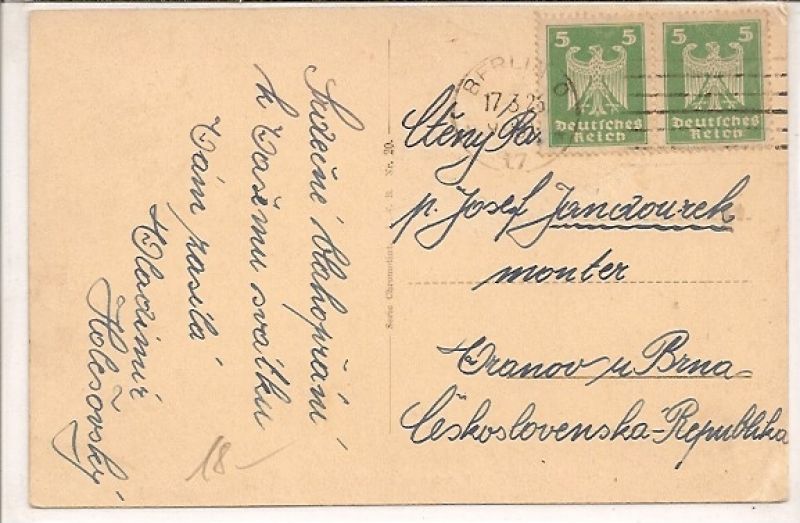 Srdečné blahopřání
k Vašemu svátku
Vám zasílá
Vladimír
Holešovský
18-
Serie Chromotint
Nr. 20.
BERLIN
17.3.25
5 5
Deutsches
Reich
5 5
Deutsches
Reich
Ctěný Pa
p. Josef Jandourek
monter
Vranov u Brna
Československá-Republika